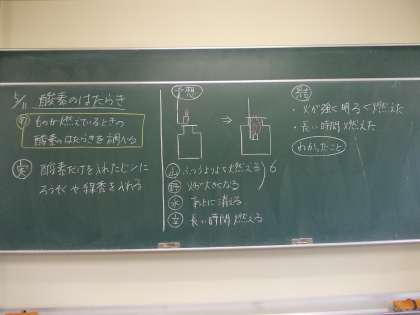 5/11 酸素のはたらき
め ものが燃えているときの
酸素のはたらきを調べる
実 酸素だけを入れたビンに
ろうそくや線香を入れる
予想
山 ふつうよりよく燃える
野 火が大きくなる
6
水 すぐに消える
立 長い時間燃える
結
・火が強く明るく燃えた
・長い時間燃えた
わかったこと